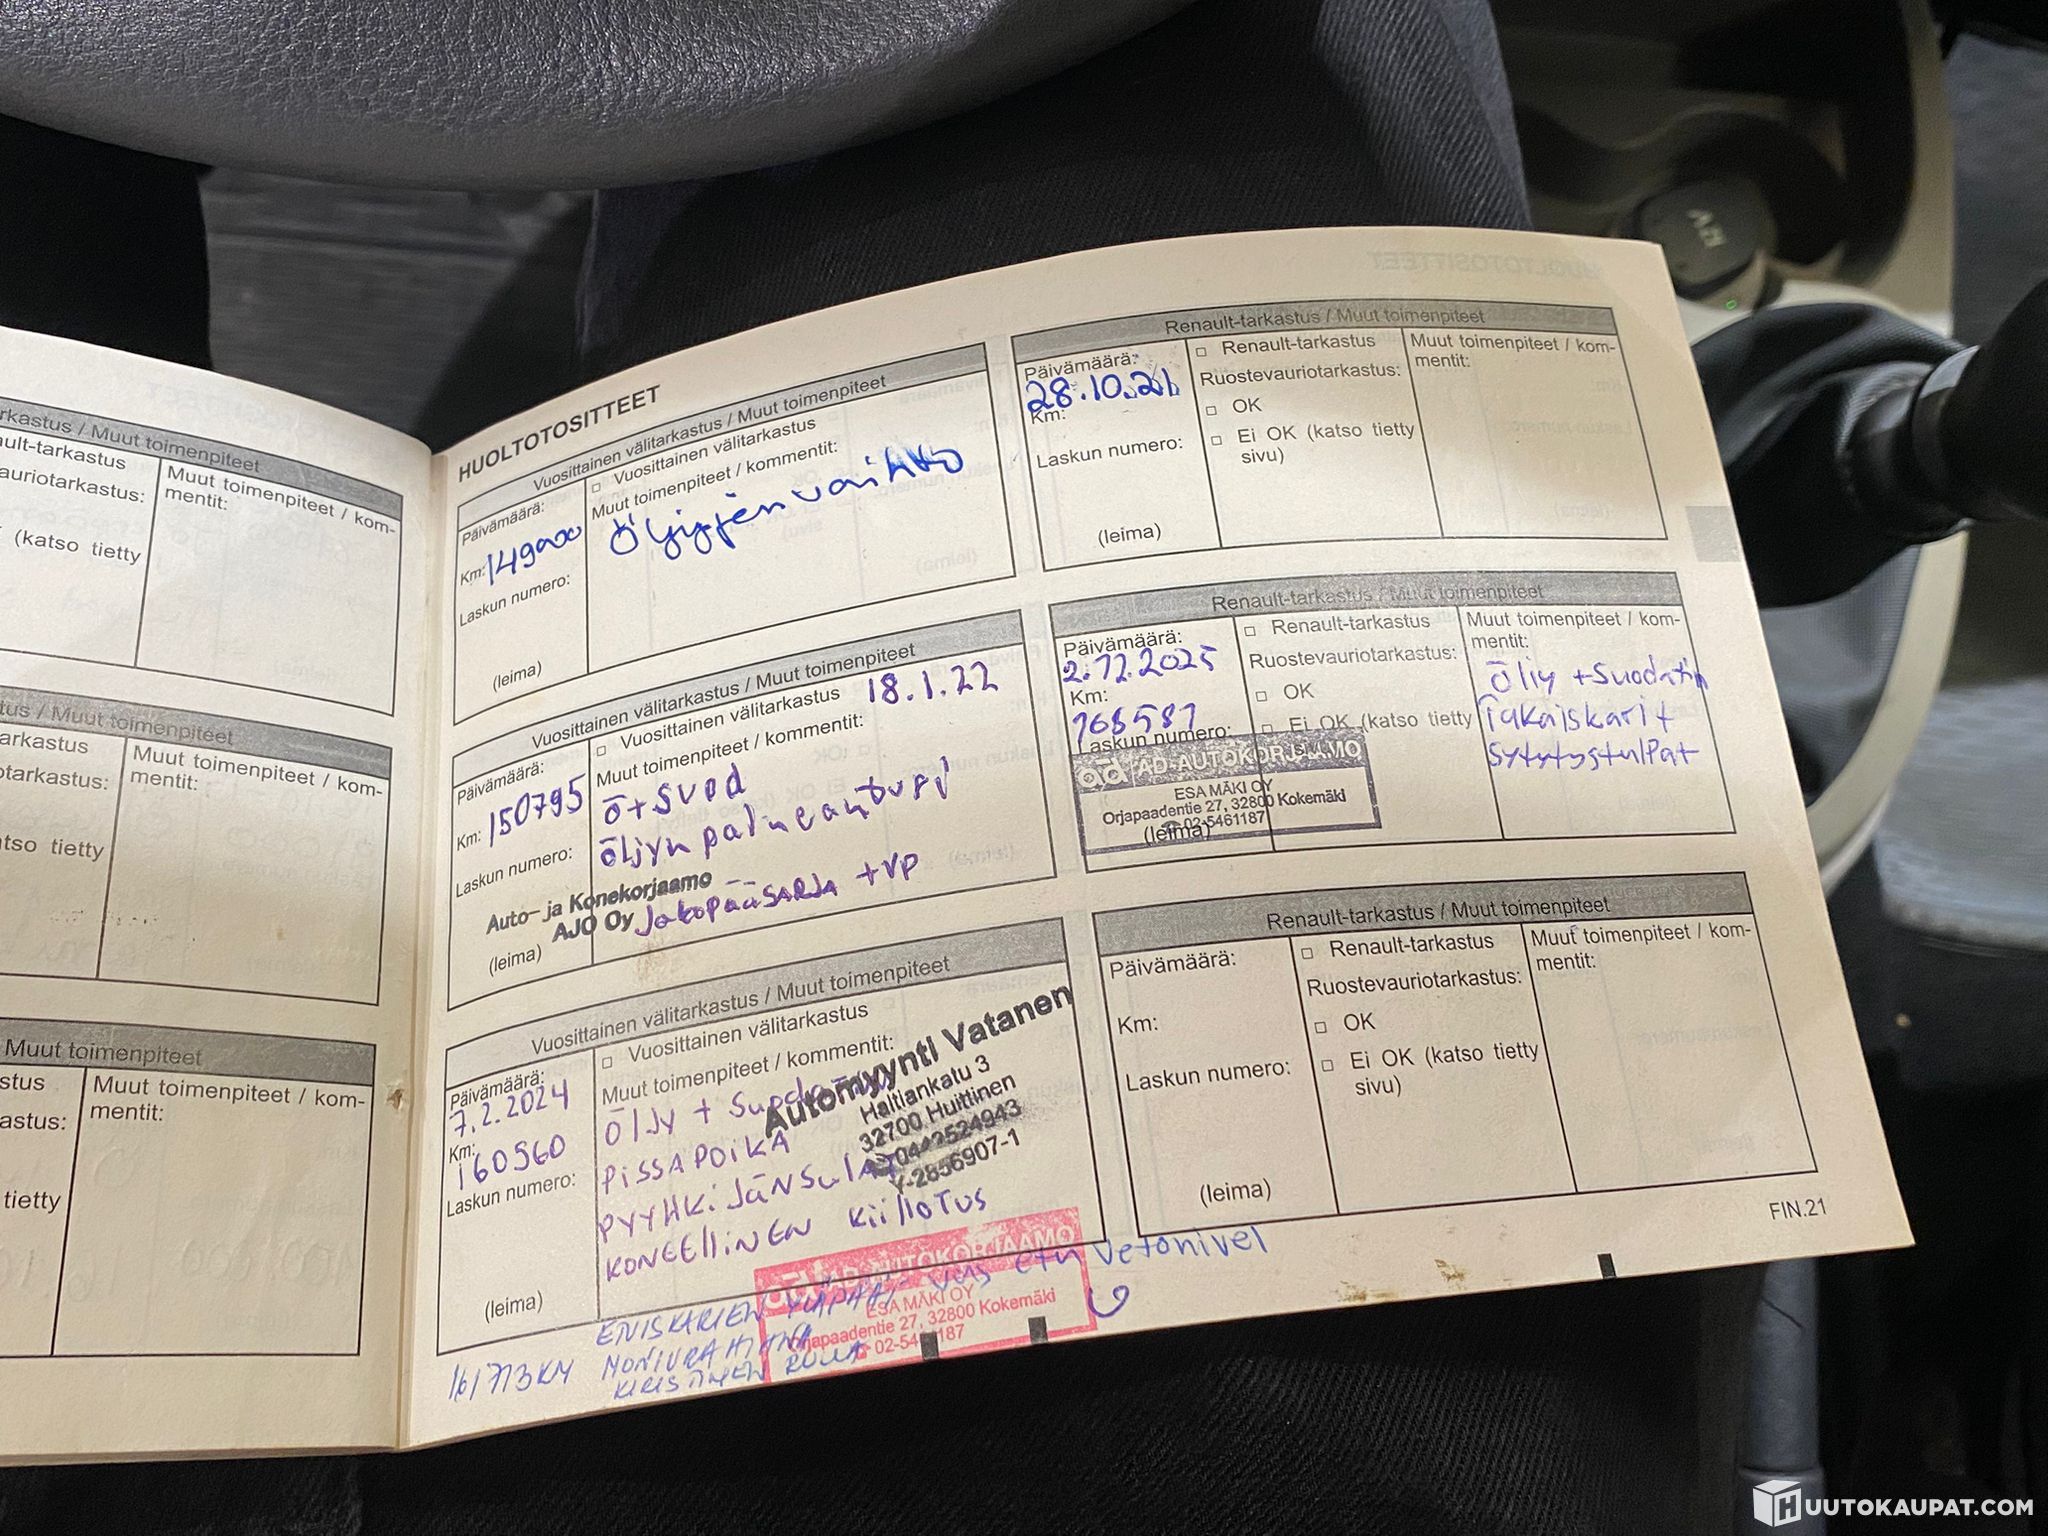 rkastus / Muut toimenpiteet
ault-tarkastus
Muut toimenpiteet / kom-
mentit:
auriotarkastus:
(katso tietty
tus / Muut toimenpiteet
arkastus
Muut toimenpiteet / kom-
mentit:
otarkastus:
tso tietty
Muut toimenpiteet
stus
Muut toimenpiteet / kom-
mentit:
astus:
tietty
HUOLTOTOSITTEET
Vuosittainen välitarkastus / Muut toimenpiteet
Päivämäärä:
□ Vuosittainen välitarkastus
Muut toimenpiteet / kommentit:
Km: 149000
Öljyjen vaihto
Laskun numero:
(leima)
Vuosittainen välitarkastus / Muut toimenpiteet
Päivämäärä:
□ Vuosittainen välitarkastus 18.1.22
Muut toimenpiteet / kommentit:
Km: 150795
Ö+suod
Laskun numero:
öljyn paineanturi
Jakopääsarja +VP
Auto- ja Konekorjaamo
AJO Oy
(leima)
Vuosittainen välitarkastus / Muut toimenpiteet
Päivämäärä:
7.2.2024
□ Vuosittainen välitarkastus
Muut toimenpiteet / kommentit:
Km:
160560
Laskun numero:
ÖLJY +
PISSAPOIKA
PYYHKIJÄNSULAT
KONEELLINEN KIILLOTUS
(leima)
Automyynti Vatanen
Haltiankatu 3
32700 Huittinen
0442524943
Y-2856907-1
AD-AUTOKORJAAMO
ESA MÄKI OY
Orjapaadentie 27, 32800 Kokemäki
02-5461187
161713KM
ETUISKARIEN YLÄPÄÄT vas etu vetonivel
MONIURAHIHNA
KIRISTIMEN RULLA
Renault-tarkastus / Muut toimenpiteet
Päivämäärä:
28.10.21
□ Renault-tarkastus
Muut toimenpiteet / kom-
mentit:
Km:
Ruostevauriotarkastus:
□ OK
Laskun numero:
□ Ei OK (katso tietty
sivu)
(leima)
Renault-tarkastus / Muut toimenpiteet
Päivämäärä:
2.12.2025
□ Renault-tarkastus
Muut toimenpiteet / kom-
mentit:
Km:
168581
Ruostevauriotarkastus:
□ OK
Laskun numero:
□ Ei OK (katso tietty
sivu)
Öljy +Suodatin
Takaiskarit
Sytytystulpat
ad AD-AUTOKORJAAMO
ESA MÄKI OY
Orjapaadentie 27, 32800 Kokemäki
02-5461187
(leima)
Renault-tarkastus / Muut toimenpiteet
Päivämäärä:
□ Renault-tarkastus
Muut toimenpiteet / kom-
mentit:
Km:
Ruostevauriotarkastus:
□ OK
Laskun numero:
□ Ei OK (katso tietty
sivu)
(leima)
FIN.21
HUUTOKAUPAT.COM